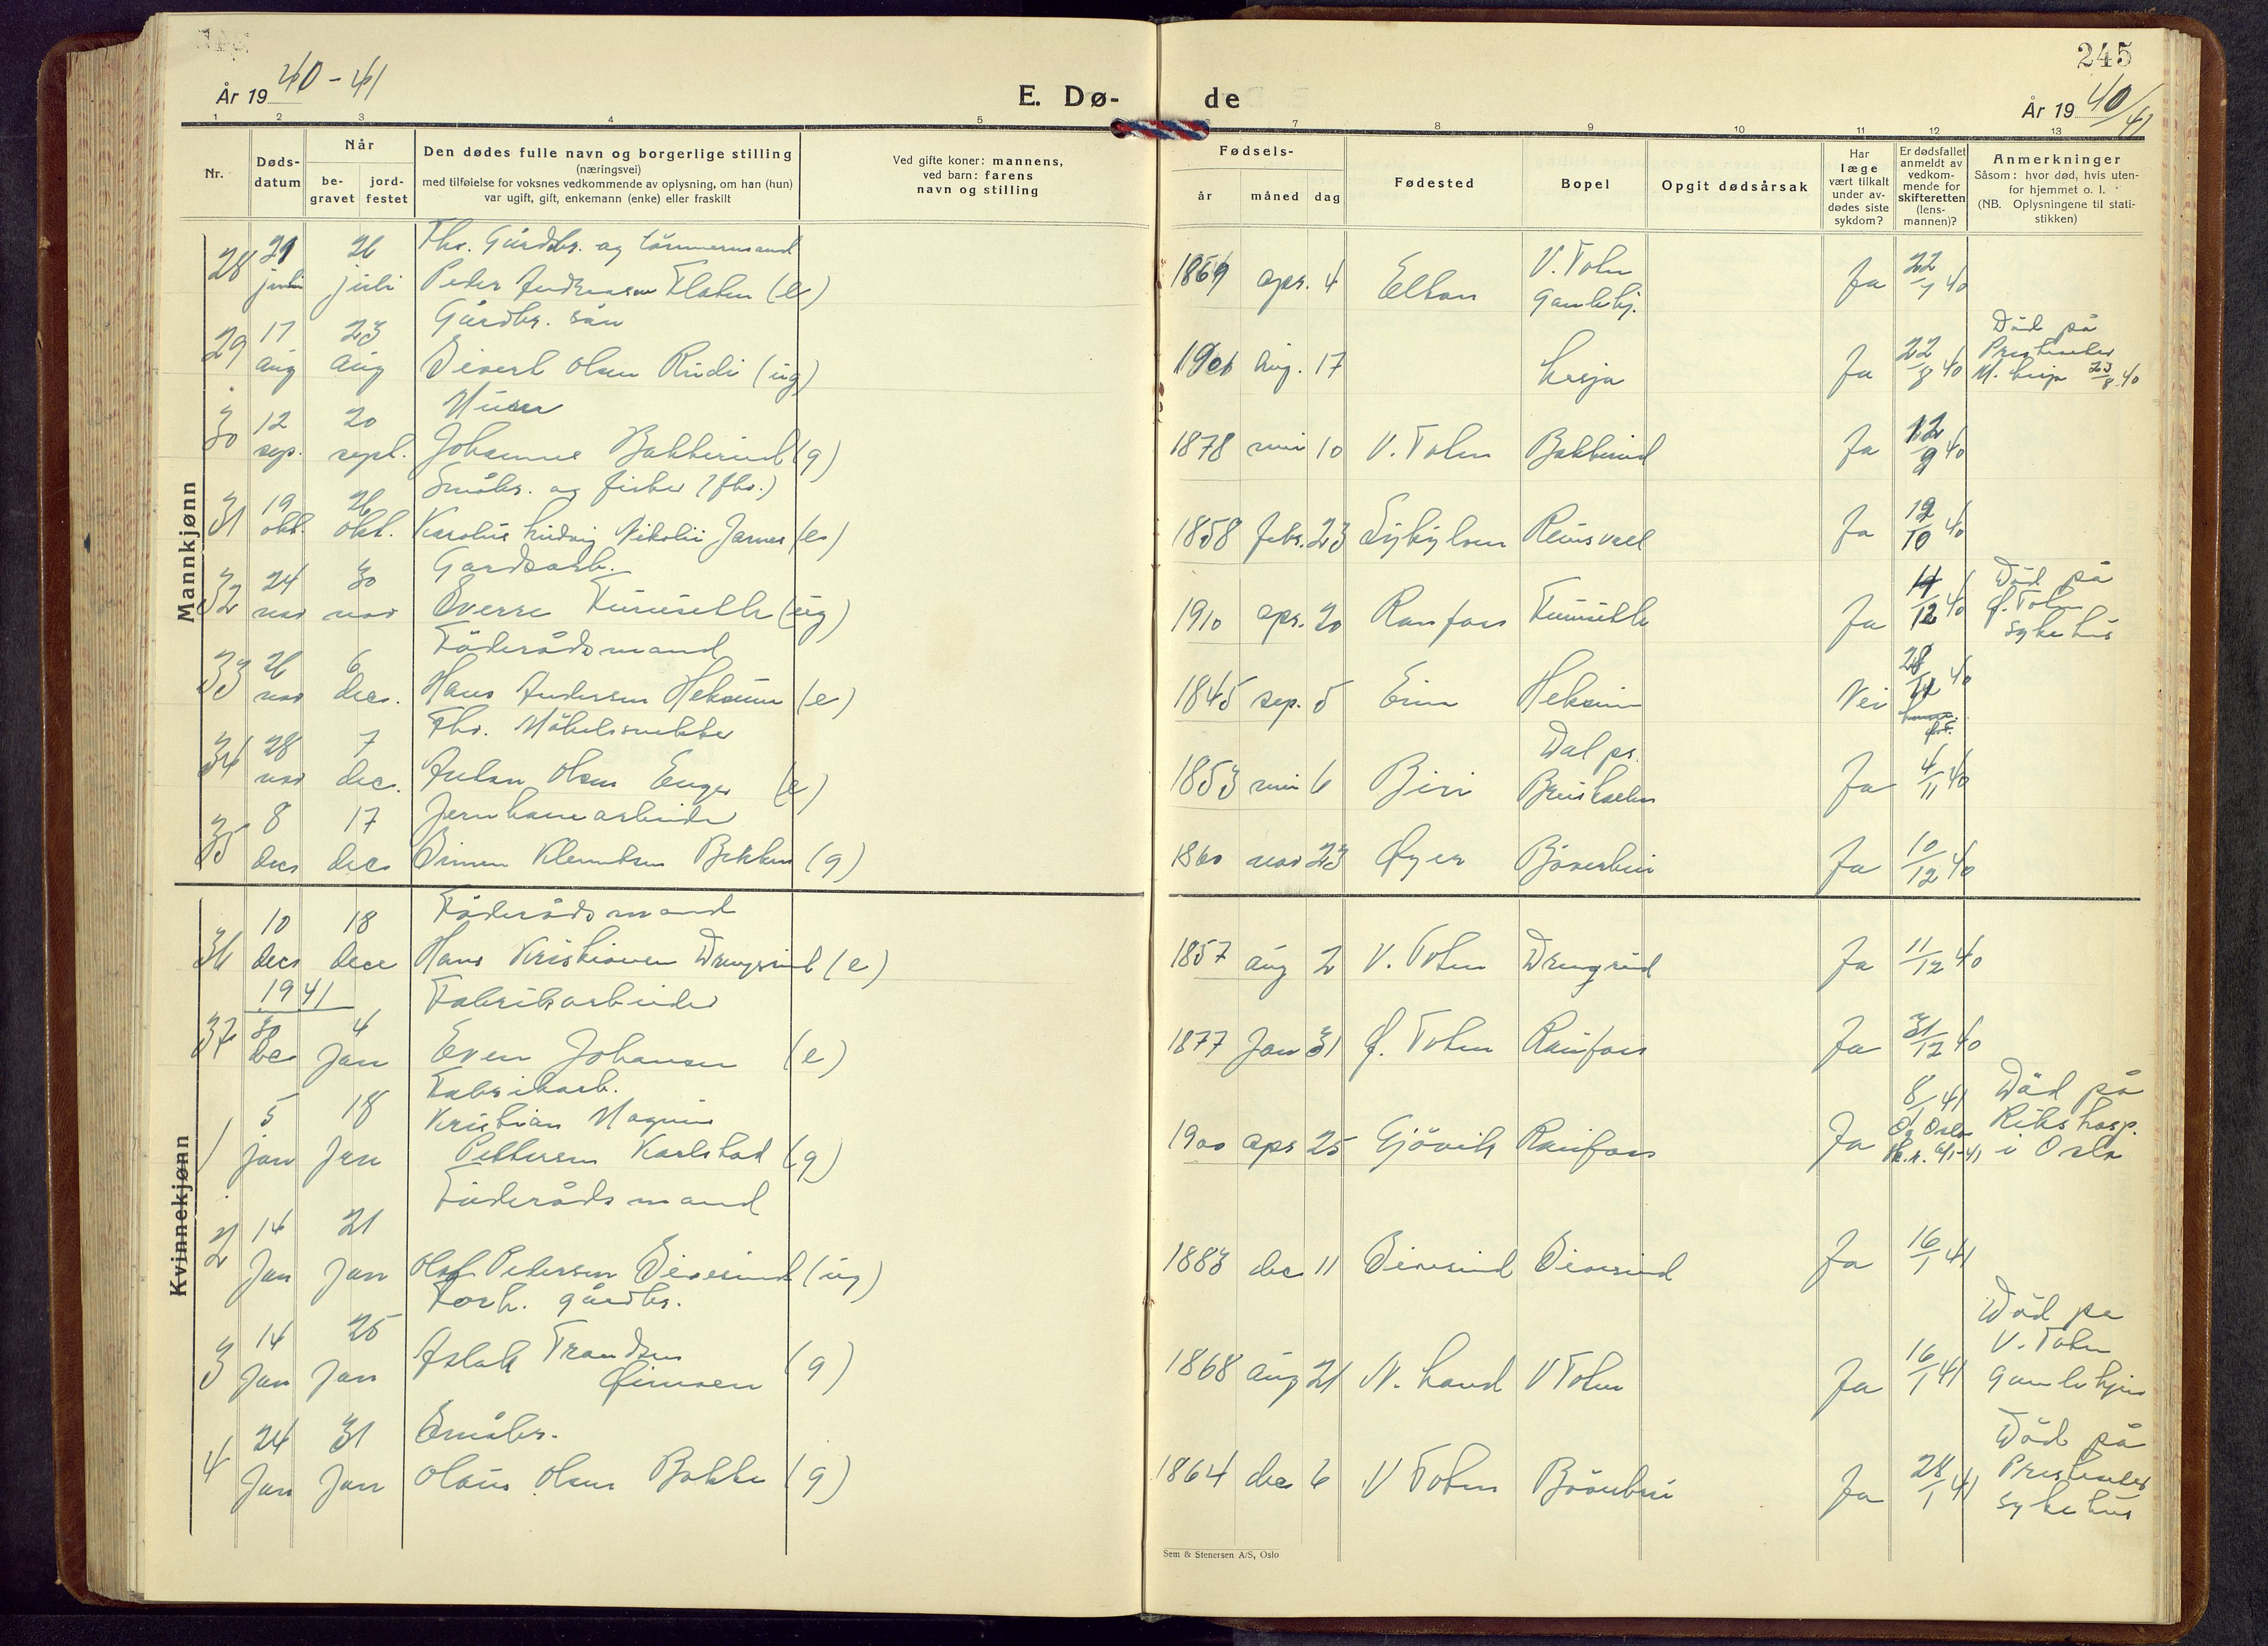 245
År 1940-41
E. Dø-
de
År 1940/41
1 2 3 4 5 6 7 8 9 10 11 12 13
Nr.
Døds-
datum
Når
be-
gravet
jord-
festet
Den dødes fulle navn og borgerlige stilling
(næringsvei)
med tilføielse for voksnes vedkommende av oplysning, om han (hun)
var ugift, gift, enkemann (enke) eller fraskilt
Ved gifte koner: mannens,
ved barn: farens
navn og stilling
Fødsels-
år
måned
dag
Fødested
Bopel
Opgit dødsårsak
Har
læge
vært tilkalt
under av-
dødes siste
sykdom?
Er dødsfallet
anmeldt av
vedkom-
mende for
skifteretten
(lens-
mannen)?
Anmerkninger
Såsom: hvor død, hvis uten-
for hjemmet o. l.
(NB. Oplysningene til stati-
stikken)
Mannkjønn
28 21 juli 26 juli Fhv. Gårdbr. og tömmermand
Peder Andreassen Flaten (e) 1869 apr. 4 Elton V. Toten Gamlehj. Ja 22/7 40
29 17 aug 23 aug Gårdbr. sön
Sivert Olsen Rudi (ug) aug. 17 Lesja Ja 22/8 40 Död på 23/8 40
30 12 sep. 20 sept. Murer
Johannes Bakkerud (g) 1878 10 V. Toten Bakkerud Ja 12/9 40
31 19 okt. 26 okt. Småbr. og fisker (fhv.)
Karolius Ludvig Nikolai (e) 1858 febr. 23 Reinsvoll Ja 12/10 40
32 24 nov 30 nov Gardsarb.
Sverre Furuseth (ug) 1910 apr. 20 Raufoss Furuseth Ja 12 40 Död på Ø. Toten sykehus
33 26 nov 6 dec. Föderådsmand
Hans Andersen Heksum (e) 1845 sep. 5 Heksum Nei 28 40
34 28 nov 7 dec. Fhv. Möbelsnekker
Anton Olsen Enger (e) 1853 6 Biri Dal pr. Ja 4/11 40
35 8 dec 17 dec Jernbanearbeider
Simen Klemetsen Bekken (g) 1860 nov 23 Øyer Böverbru Ja 10/12 40
36 10 dec 18 dec Föderådsmand
Hans Kristiansen Drengsrud (e) 1857 aug 2 V. Toten Drengsrud Ja 11/12 40
1941
37 30 dec 4 Jan Fabrikarbeider
Even Johansen (e) 1877 Jan 31 Ø. Toten Raufoss Ja 31/12 40
Kvinnekjønn
1 5 jan 18 Jan Fabrikarb.
Kristian Magnus
Pettersen Karlstad (g) 1900 apr 25 Gjövik Raufoss Ja 8/1 41 Död på Rikshosp. i Oslo
2 14 Jan 21 Jan Föderådsmand
Olaf Pedersen Sivesind (ug) 1883 dec 11 Sivesind Sivesind Ja 16/1 41
3 14 Jan 25 Jan Forh. gårdbr.
Aslak Trondsen (g) 1868 aug 21 N. Land V Toten Ja 16/1 41 Död på V. Toten gamlehjem
4 24 Jan 31 Jan Småbr.
Olaus Olsen Bakke (g) 1864 dec 6 V Toten Böverbru Ja 28/1 41 Död på Presteseter sykehus
Sem & Stenersen A/S, Oslo